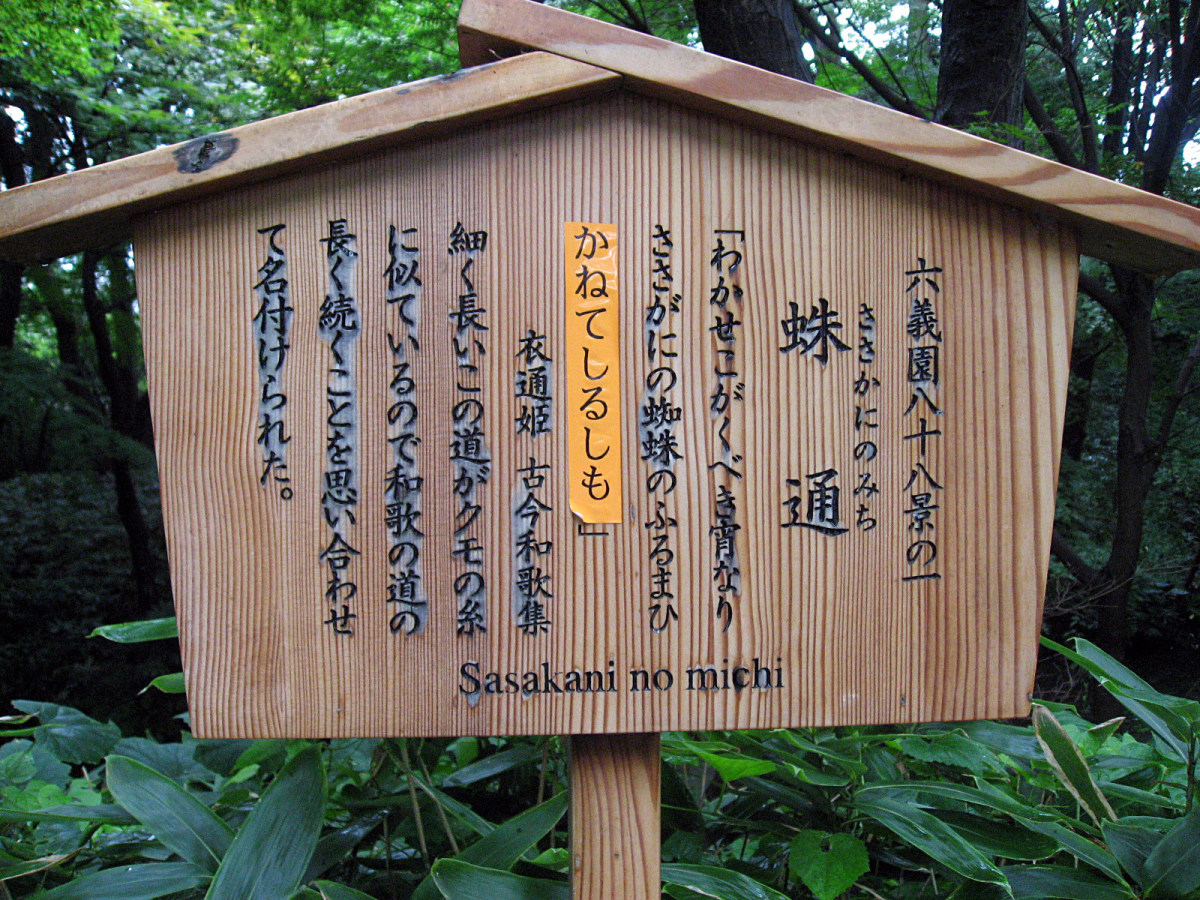 六義園八十八景の一
ささかにのみち
蛛通
「わかせこがくべき宵なり
ささがにの蜘蛛のふるまひ
かねてしるしも」
衣通姫 古今和歌集
細く長いこの道がクモの糸
に似ているので和歌の道の
長く続くことを思い合わせ
て名付けられた。
Sasakani no michi